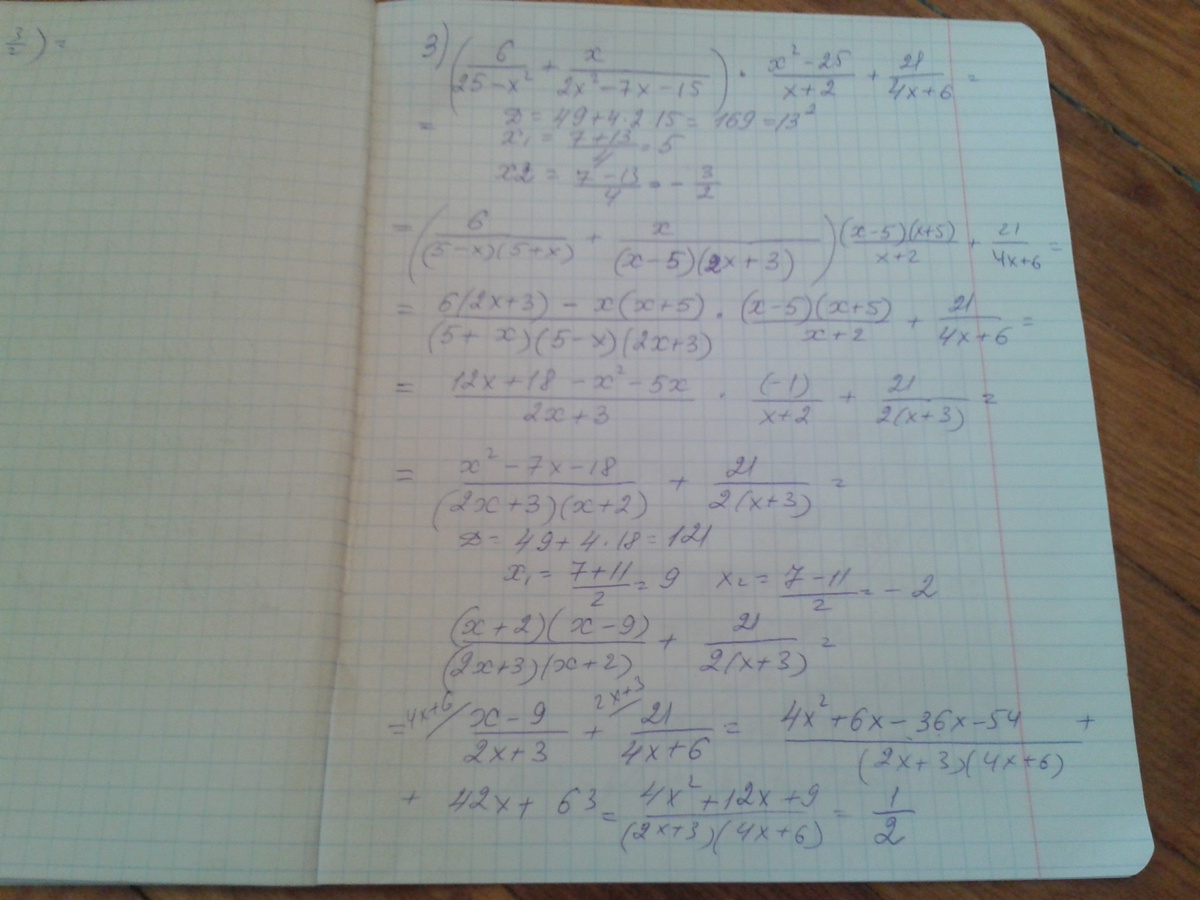 3/2) =
3) (6/(25-x²) + x/(2x²-7x-15)) · (x²-25)/(x+2) + 21/(4x+6) =
= D = 49+4·2·15 = 169 = 13²
x₁ = (7+13)/4 = 5
x2 = (7-13)/4 = - 3/2
= (6/((5-x)(5+x)) + x/((x-5)(2x+3))) (x-5)(x+5)/(x+2) + 21/(4x+6) =
= (6(2x+3) - x(x+5))/((5+x)(5-x)(2x+3)) · (x-5)(x+5)/(x+2) + 21/(4x+6) =
= (12x+18-x²-5x)/(2x+3) · (-1)/(x+2) + 21/(2(x+3)) =
= (x²-7x-18)/((2x+3)(x+2)) + 21/(2(x+3)) =
D = 49+4·18 = 121
x₁ = (7+11)/2 = 9 x₂ = (7-11)/2 = -2
(x+2)(x-9)/((2x+3)(x+2)) + 21/(2(x+3)) =
= 4x+6/ (x-9)/(2x+3) + 2x+3/ 21/(4x+6) = (4x²+6x-36x-54)/((2x+3)(4x+6)) +
+ 42x+63 = (4x²+12x+9)/((2x+3)(4x+6)) = 1/2